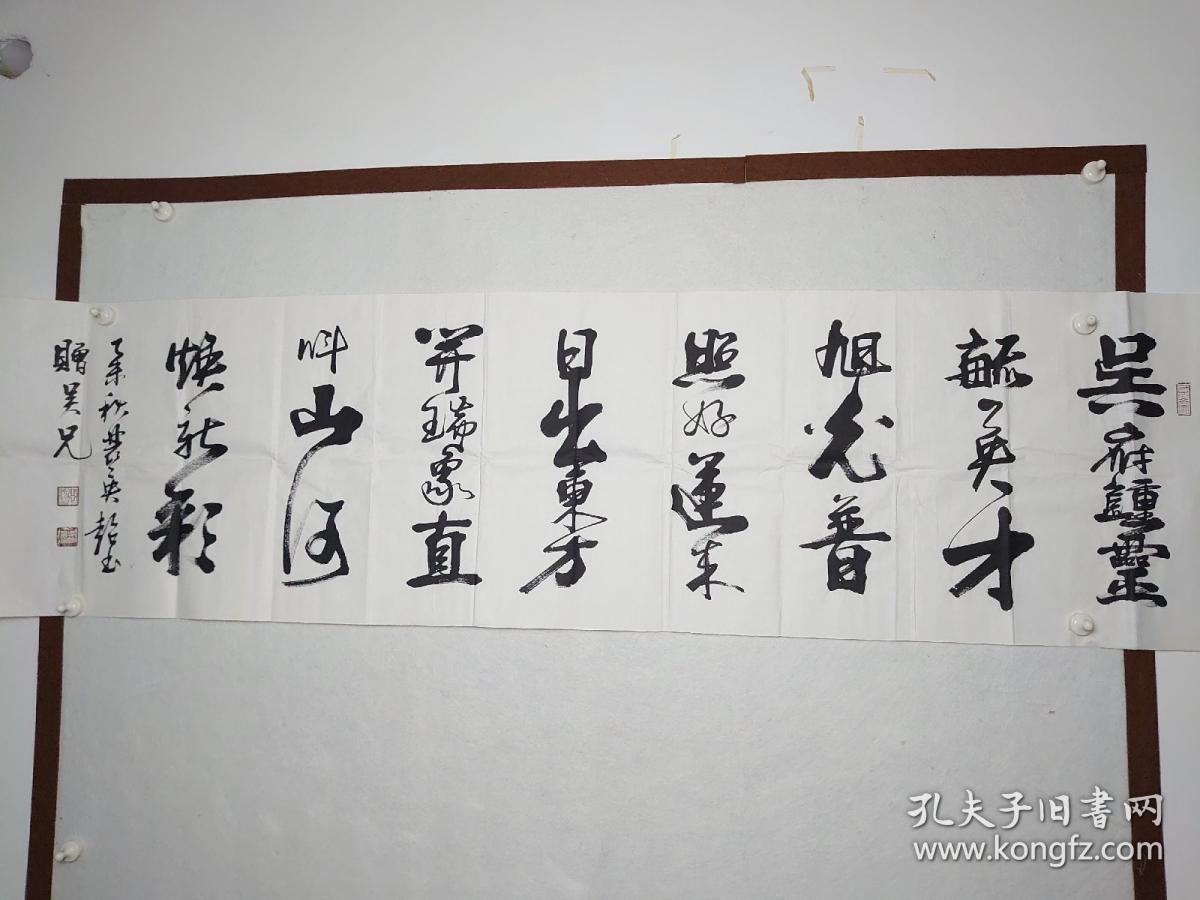 吴府鍾靈
毓英才
旭光普
照好運來
日出東方
开瑞象直
叫山河
焕新彩
秋
贈吴兄
孔夫子旧書网
www.kongfz.com